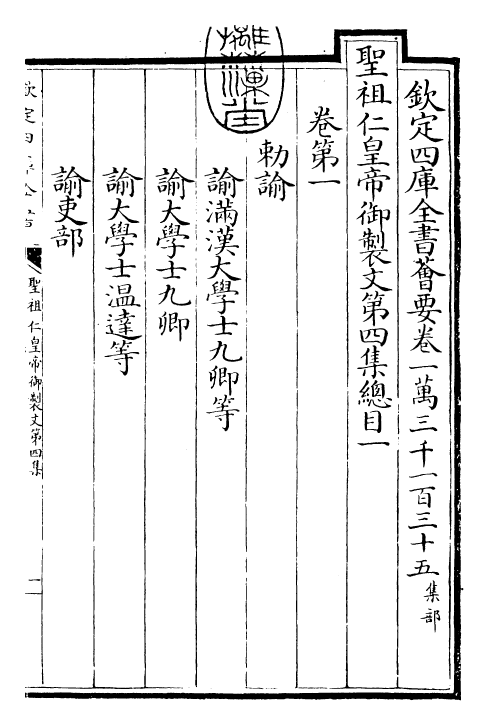 欽定四庫全書薈要卷一萬三千一百三十五集部
聖祖仁皇帝御製文第四集總目一
卷第一
勅諭
諭滿漢大學士九卿等
諭大學士九卿
諭大學士温達等
諭吏部
聖祖仁皇帝御製文第四集